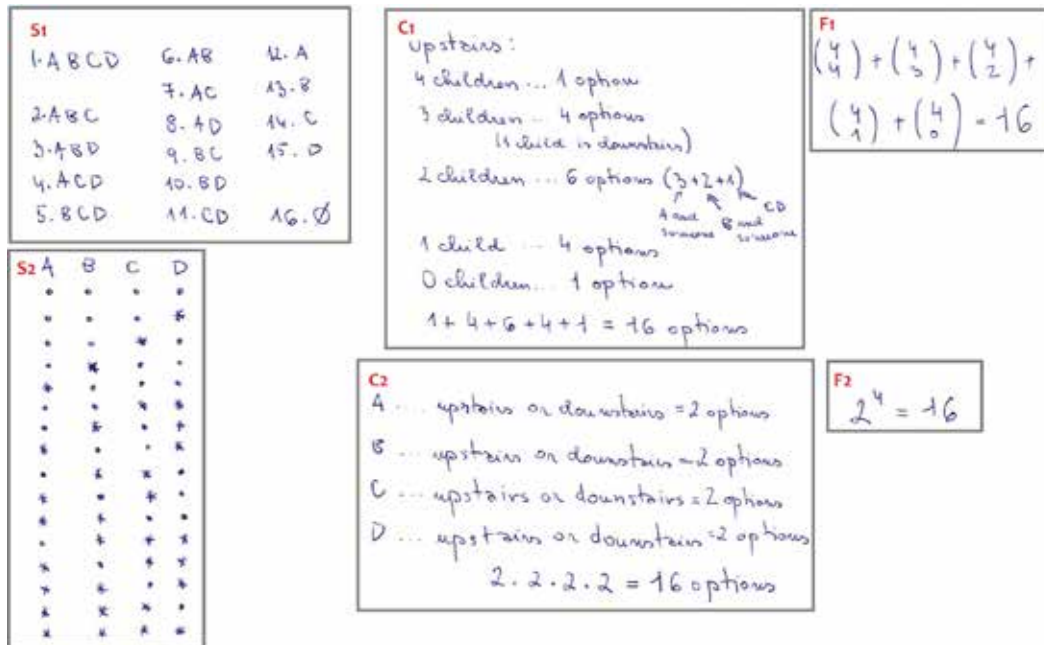 S1
1. A B C D 6. AB 12. A
7. AC 13. B
2. A B C 8. AD 14. C
3. A B D 9. BC 15. D
4. A C D 10. BD
5. B C D 11. CD 16. Ø
S2 A B C D
• • • •
• • • *
• • * •
• * • •
* • • •
• • * *
• * • *
* • • *
• * * •
* • * •
* * • •
• * * *
* • * *
* * • *
* * * •
* * * *
C1
upstairs:
4 children ... 1 option
3 children ... 4 options
(1 child is downstairs)
2 children ... 6 options (3+2+1)
A and someone
B and someone
CD
1 child ... 4 options
0 children ... 1 option
1 + 4 + 6 + 4 + 1 = 16 options
C2
A .... upstairs or downstairs = 2 options
B .... upstairs or downstairs = 2 options
C ... upstairs or downstairs = 2 options
D ... upstairs or downstairs = 2 options
2 . 2 . 2 . 2 = 16 options
F1
(4 4) + (4 3) + (4 2) +
(4 1) + (4 0) = 16
F2
2⁴ = 16